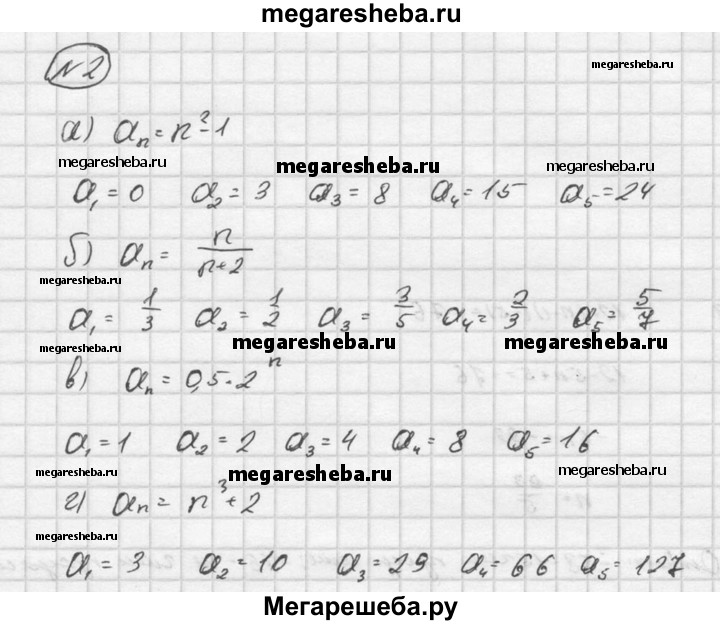 megaresheba.ru
№2
megaresheba.ru
а) aₙ = n² - 1
megaresheba.ru megaresheba.ru megaresheba.ru
a₁ = 0 a₂ = 3 a₃ = 8 a₄ = 15 a₅ = 24
б) aₙ = n/(n+2)
megaresheba.ru
a₁ = 1/3 a₂ = 1/2 a₃ = 3/5 a₄ = 2/3 a₅ = 5/7
megaresheba.ru megaresheba.ru megaresheba.ru
в) aₙ = 0,5 · 2ⁿ
a₁ = 1 a₂ = 2 a₃ = 4 a₄ = 8 a₅ = 16
megaresheba.ru megaresheba.ru megaresheba.ru
г) aₙ = n³ + 2
megaresheba.ru
a₁ = 3 a₂ = 10 a₃ = 29 a₄ = 66 a₅ = 127
Мегарешеба.ру